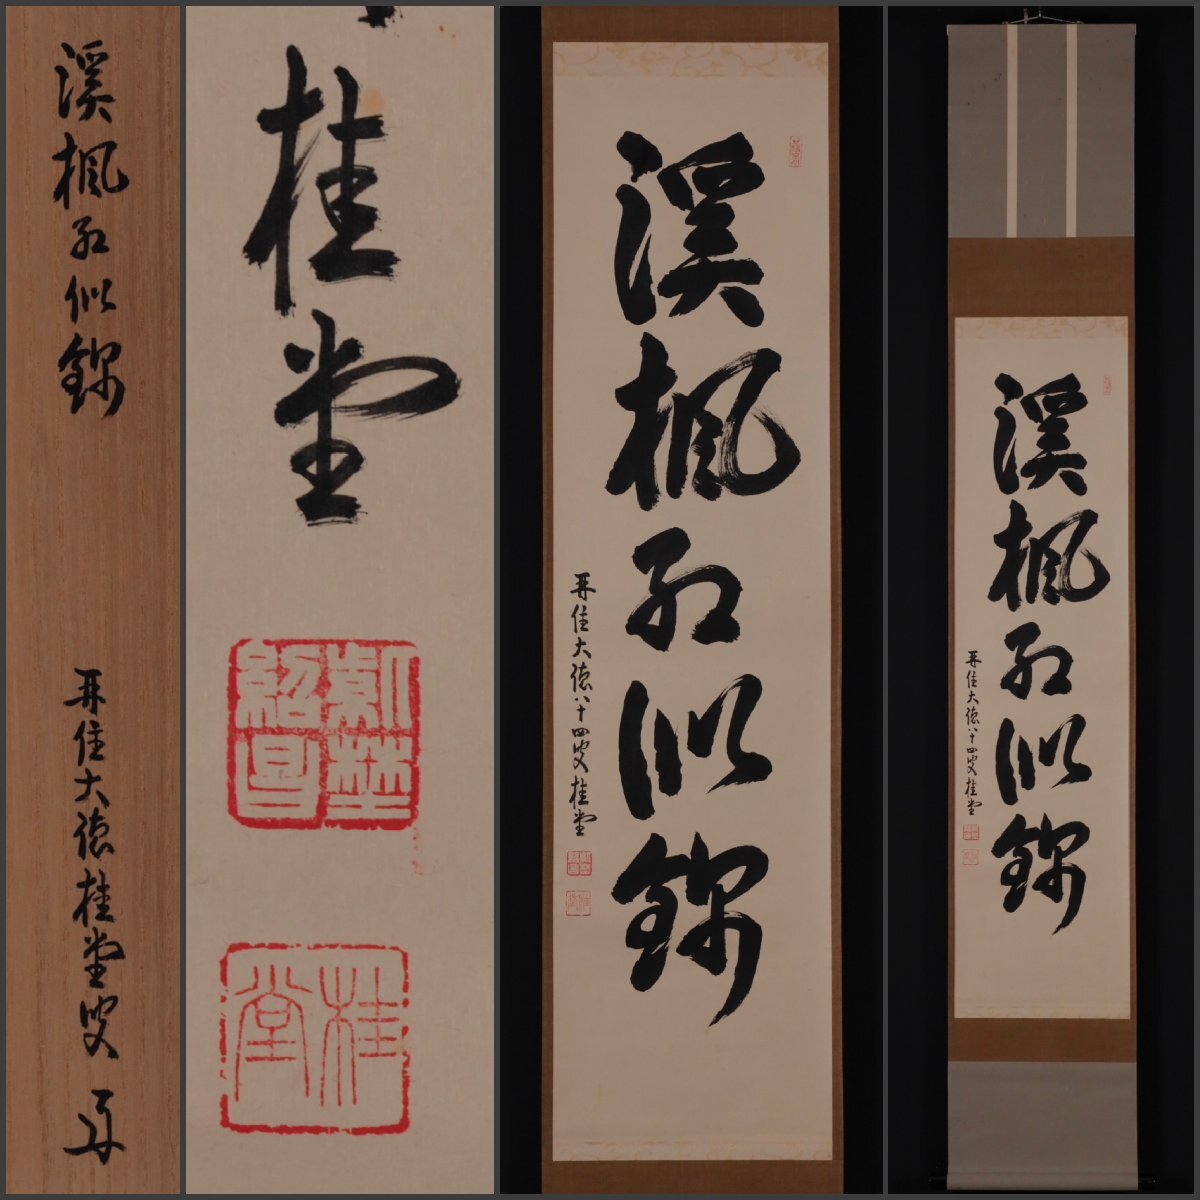 溪楓紅似錦
再住大徳桂堂叟
桂堂
紹昌
桂堂
溪楓紅似錦
再住大徳八十四叟桂堂
溪楓紅似錦
再住大徳八十四叟桂堂